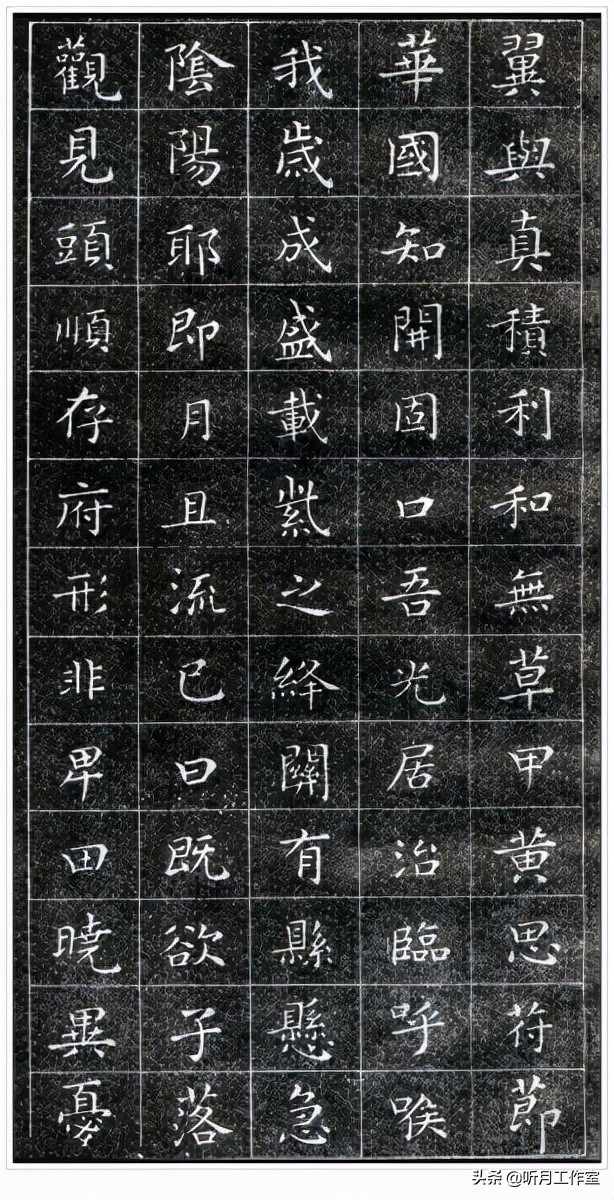 翼與真積利和無草甲黄思符節
華國知開固口吾光居治臨呼喉
我歲成盛載紫之絳關有縣懸急
陰陽耶即月且流已曰既欲子落
觀見頭順存府形非卑田曉異憂
头条 @听月工作室